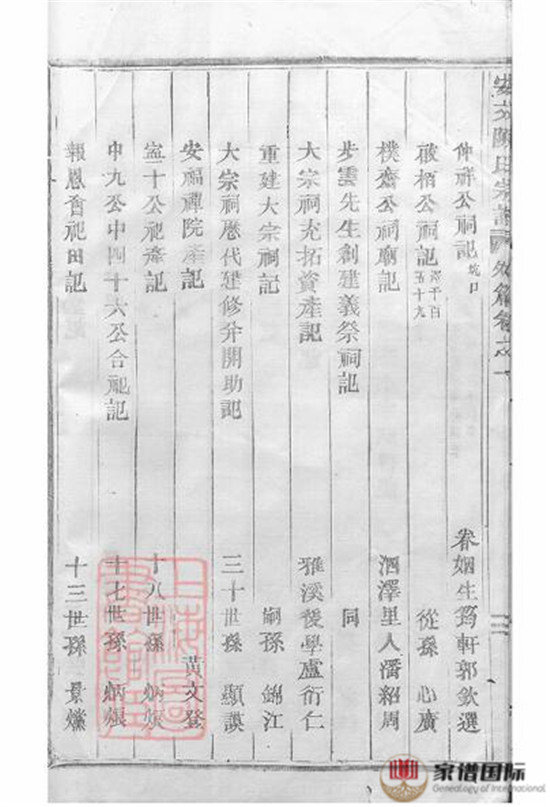 安文陳氏宗譜 外篇卷之一
仲祥公祠記 坑口 眷姻生筠軒郭欽選
敬栢公祠記 五十九 從孫 心廣
樸齋公祠廟記 泗澤里人潘紹周
步雲先生創建義祭祠記 同
大宗祠充拓資產記 雅溪後學盧衍仁
重建大宗祠記 嗣孫 錦江
大宗祠歷代建修并開助記 三十世孫 顯謨
安福禪院產記 黃文登
十公祀產記 十八世孫 炳
中九公中四十六公合祀記 十七世孫 炳
報恩會祀田記 十三世孫 景
家谱国际
Genealogy of International